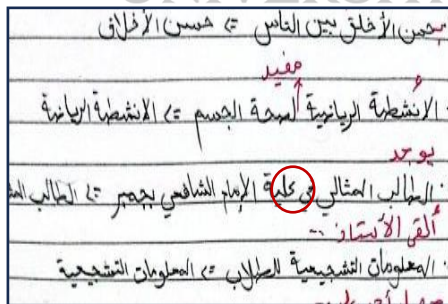 حسن الأخلق بين الناس => حسن الأخلاق
مفيد
الأنشطة الرياضية لصحة الجسم => الانشطة الرياضية
يوجد
الطالب المثالي في كلية الإمام الشافعي بجمبر => الطالب
ألقى الأستاذ
المعلومات التشجيعية للطلاب => المعلومات التشجيعية